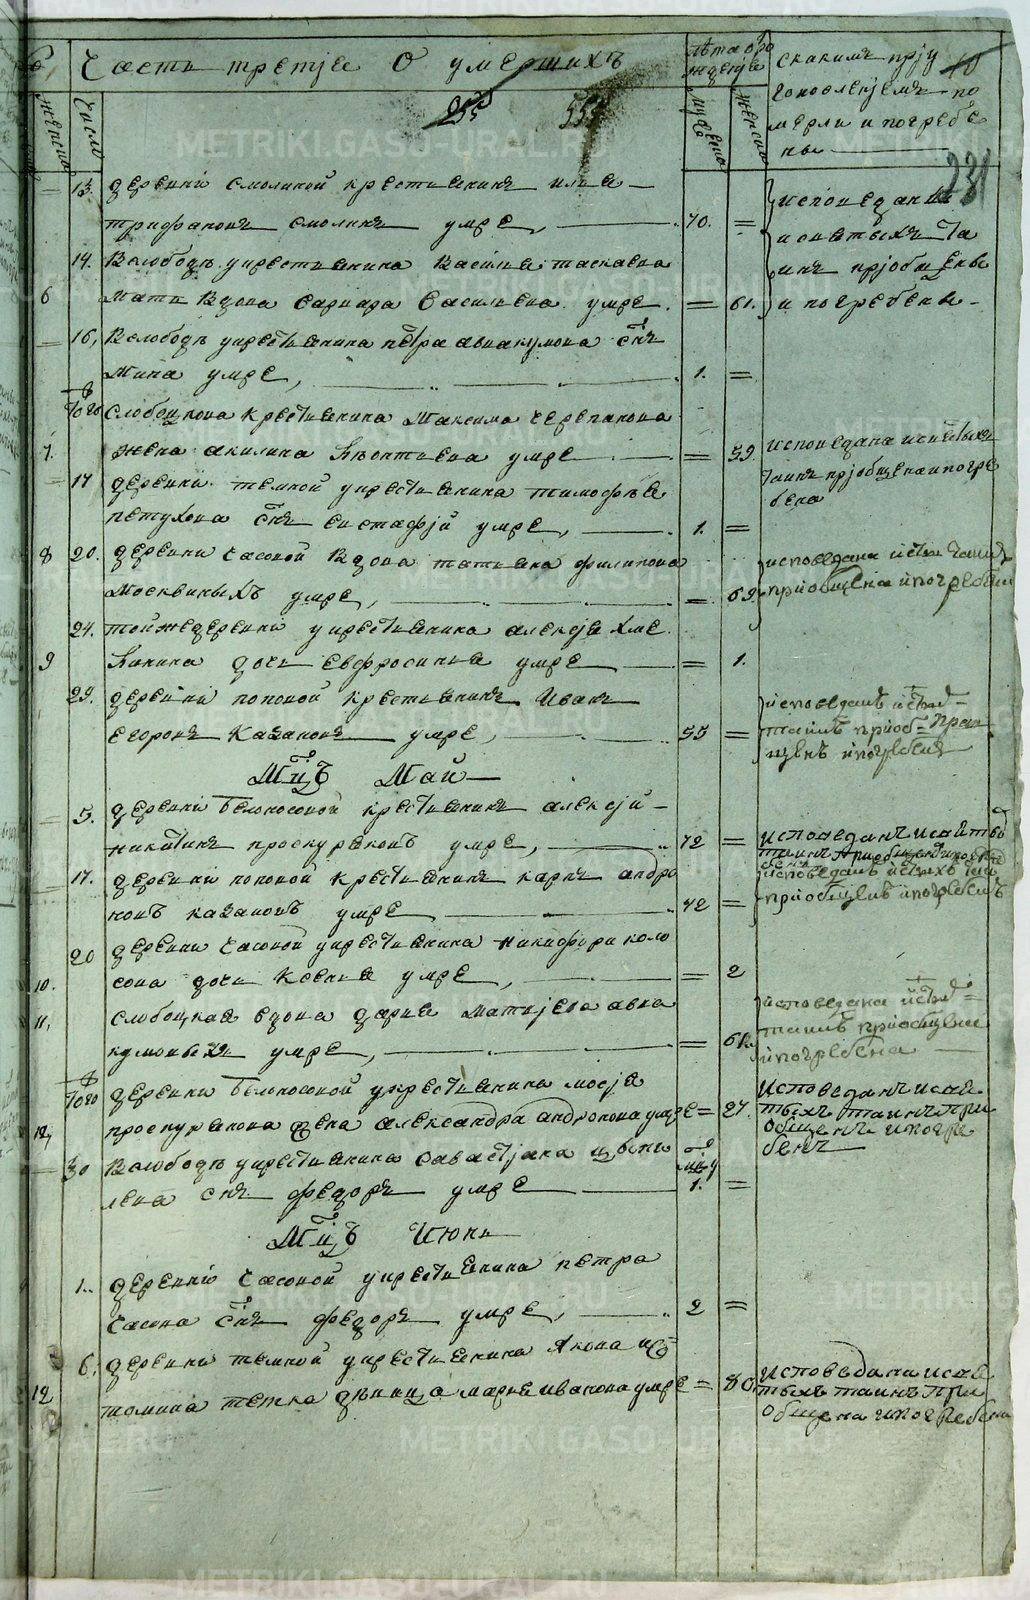 Часть третіе О умершихъ
Лѣта оро
жденіе
Скакимъ пріу
готовленіемъ по
мерли и погребе
ны
женска
Число
мужеска
женска
255
555
10
231
13. деревни Смолиной крестьянинъ илья
трифановъ смолинъ умре, 70. =
исповеданы
и святыхъ Та
инъ пріобщены
и погребены
14. Вслободѣ укрестьянина Василья таскаева
6 мати Вдова Варвара Васильева умре. = 61.
16, Вслободѣ укрестьянина петра авакумова снъ
Мина умре, 1. =
Слободскова Крестьянина Максима черепанова
7. жена акилина Леонтьева умре = 59
исповедана исвятыхъ
таинъ пріобщена и погре
бена
17 деревни темной укрестьянина тимофѣя
петухова снъ евстафій умре, 1. =
8 20. деревни Часовой Вдова татьяна филипова
Москвиныхъ умре, = 69
исповедана
приобщена ипогребена
24. тойжедеревни укрестьянина алексѣя Хме
9 линина дочь Евфросинья умре = 1.
29. деревни поповой Крестьянинъ Иванъ
Егоровъ Казаковъ умре, 55 =
исповеданъ
таинъ приоб
щенъ ипогребенъ
Мцъ Май
5. деревни Белоносовой крестьянинъ алексѣй
никитинъ проскуряковъ умре, 72 =
исповеданъ исвятыхъ
таинъ приобщенъ ипогре
17. деревни поповой Крестьянинъ карпъ андро
новъ казаковъ умре 42 =
исповеданъ
приобщенъ ипогребенъ
20 деревни Часовой укрестьянина никифора коло
10. сова дочь Ксенья умре, = 2
11, слобоцкая вдова дарья Матвѣева авва
кумовыхъ умре, = 61.
исповедана
таинъ приобщена
ипогребена
деревни Белоносовой укрестьянина мосѣя
12, проскурякова жена александра андронова умре = 27.
Исповеданъ исвя
тыхъ таинъ при
общенъ ипогре
бенъ
30 Вслободѣ укрестьянина Савастьяна цыпы
лева снъ федоръ умре 1. =
Мцъ Июнь
1.. деревни Часовой укрестьянина петра
Часова снъ федоръ умре, 2 =
6. деревни темной укрестьянина Якова ис
12 томина тетка девица марья ивановна умре = 80.
Исповедана исвя
тыхъ таинъ при
общена ипогребена
METRIKI.GASO-URAL.RU